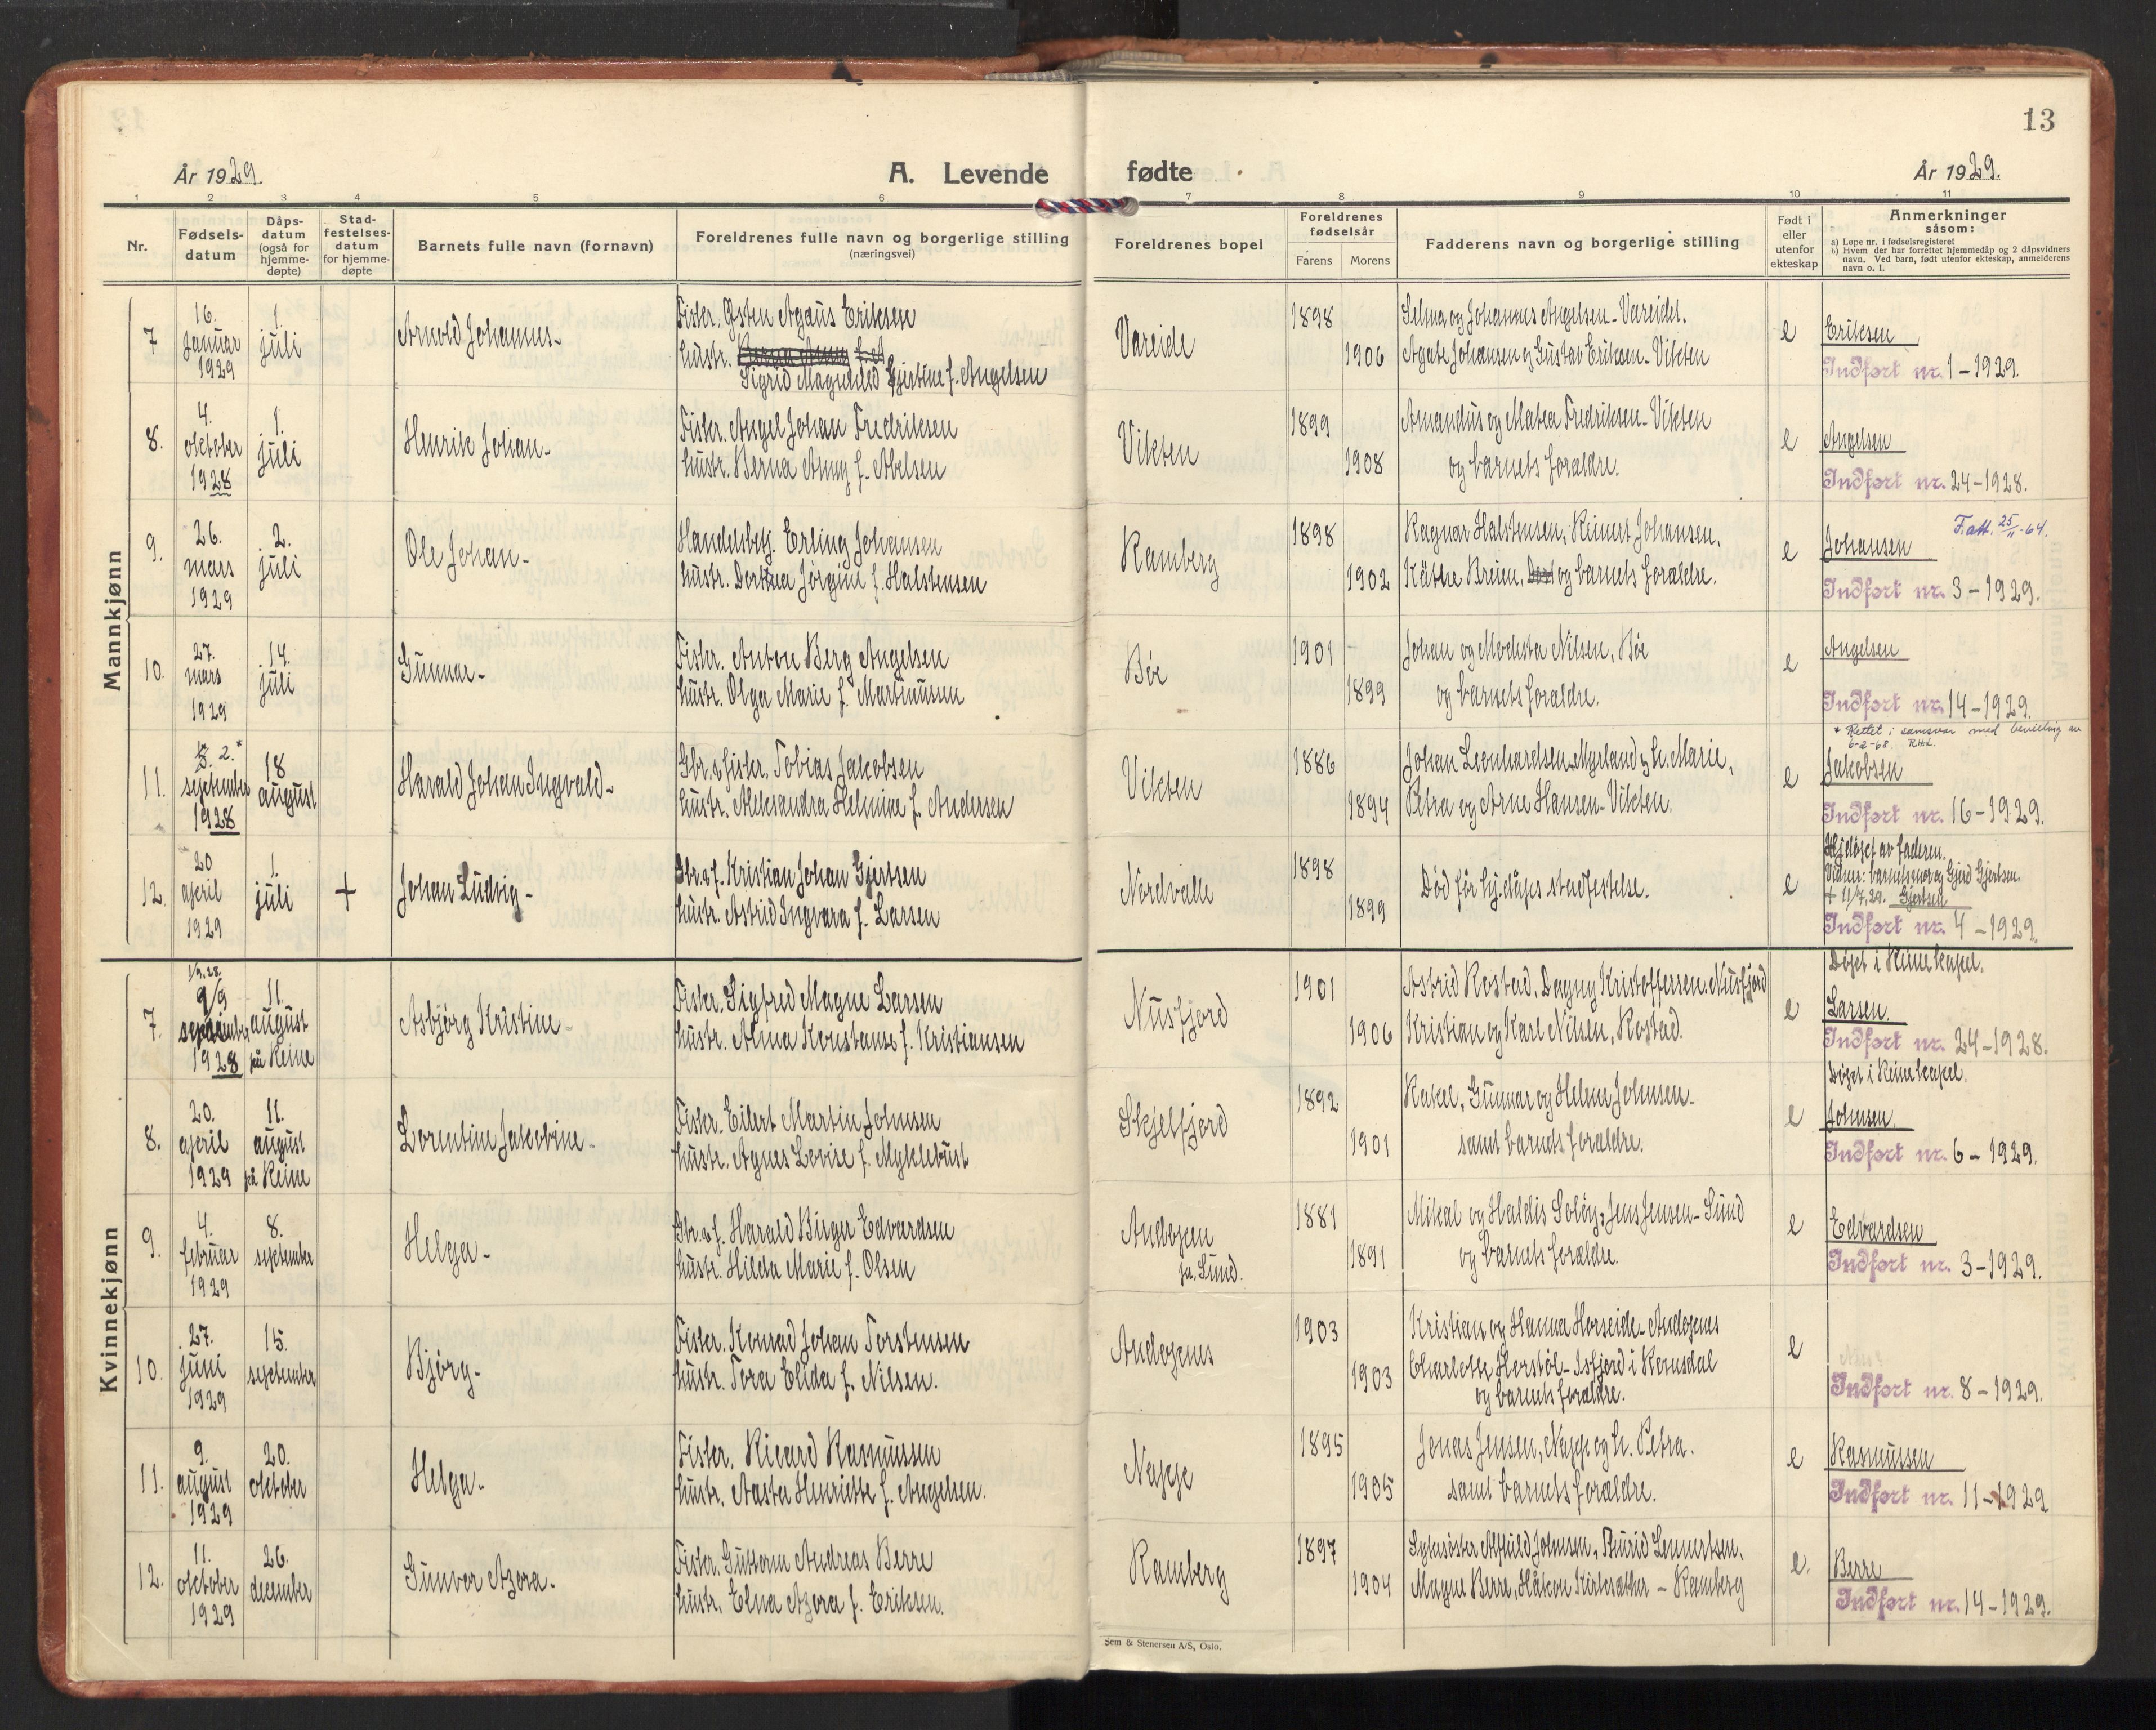 13
År 1929.
A. Levende fødte
År 1929.
1 2 3 4 5 6 7 8 9 10 11
Nr.
Fødsels-
datum
Dåps-
datum
(også for
hjemme-
døpte)
Stad-
festelses-
datum
for hjemme-
døpte
Barnets fulle navn (fornavn)
Foreldrenes fulle navn og borgerlige stilling
(næringsvei)
Foreldrenes bopel
Foreldrenes
fødselsår
Farens Morens
Fadderens navn og borgerlige stilling
Født i
eller
utenfor
ekteskap
Anmerkninger
såsom:
a) Løpe nr. i fødselsregisteret
b) Hvem der har forrettet hjemmedåp og 2 dåpsvidners
navn. Ved barn, født utenfor ekteskap, anmelderens
navn o. l.
Mannkjønn
7 16. Januar 1929
1. juli
Arnold Johannes-
Fisker. Østen Agaus Eriksen
hustr. Sigrid Magnhild Gjertine f. Angelsen
Vareide
1898
1906
Selma og Johannes Angelsen - Vareidet.
Agate Johansen og Gustav Eriksen - Vikten
e
Eriksen
Indført nr. 1-1929.
8. 4. oktober 1928
1. juli
Henrik Johan-
Fisker. Angel Johan Fredriksen
hustr. Berna Anny f. Abelsen
Vikten
1899
1908
Amandus og Matea Fredriksen - Vikten
og barnets forældre.
e
Angelsen
Indført nr. 24-1928.
9. 26. mars 1929
2. juli
Ole Johan-
Handelsbetj. Erling Johansen
hustr. Dorthea Jörgine f. Halstensen
Ramberg
1898
1902
Ragnar Halstensen, Reinert Johansen,
Käthe Breien, og barnets forældre.
e
F.att. 25/11-64.
Johansen
Indført nr. 3-1929.
10. 27. mars 1929
14. juli
Gunnar-
Fisker. Anton Berg Angelsen
hustr. Olga Marie f. Martinussen
Bøe
1901
1899
Johan og Modesta Nilsen, Bøe
og barnets forældre.
e
Angelsen
Indført nr. 14-1929.
11. 2.* september 1928
18 august
Harald Johan Ingvald-
Gbr. & fisker. Tobias Jakobsen
hustr. Aleksandra Helmine f. Andersen
Vikten
1886
1894
Johan Leonhardsen, Myrland og h. Marie,
Petra og Arne Hansen - Vikten.
e
* Rettet i samsvar med bevilling av
6-2-68. RHL.
Jakobsen
Indført nr. 16-1929.
12. 20 april 1929
1. juli
+
Johan Ludvig-
Gbr. & f. Kristian Johan Gjertsen
hustr. Astrid Ingvara f. Larsen
Nordvalle
1898
1899
Død før hj.dåps stadfestelse.
e
Hj.døpt av faderen.
Vidner: barnets mor og Gjerd Gjertsen.
+ 11/7.29. Gjertsen
Indført nr. 4-1929.
Kvinnekjønn
7. 1/9.28. 9/9 september 1928
11. august på Reine
Asbjørg Kristine-
Fisker. Sigfred Magne Larsen
hustr. Alma Konstanse f. Kristiansen
Nusfjord
1901
1906
Astrid Rostad, Dagny Kristoffersen, Nusfjord
Kristian og Karl Nilsen, Rostad.
e
Døpt i Reine kapel.
Larsen.
Indført nr. 24-1928.
8. 20. april 1929
11. august på Reine
Lorentine Jakobine-
Fisker. Eilert Martin Johnsen
hustr. Agnes Lovise f. Myklebust
Skjelfjord
1892
1901
Rakel, Gunnar og Helene Johnsen-
samt barnets forældre.
e
Døpt i Reine kapel.
Johnsen.
Indført nr. 6-1929.
9. 4. februar 1929
8. september
Helga-
Gbr. & f. Harald Birger Edvardsen
hustr. Hilda Marie f. Olsen
Andopen
pr. Sund.
1881
1891
Mikal og Haldis Soløy, Jens Jensen - Sund
og barnets forældre.
e
Edvardsen
Indført nr. 3-1929.
10. 27. juni 1929
15. september
Bjørg-
Fisker. Konrad Johan Torstensen
hustr. Tora Elida f. Nilsen.
Andopnes
1903
1903
Kristian og Hanna Horseide - Andopnes
Charlotte Herstøl - Isfjord i Romsdal
og barnets forældre.
e
Indført nr. 8-1929.
11. 9. august 1929
20. oktober
Helga-
Fisker. Rikard Rasmussen
hustr. Aasta Henriette f. Angelsen.
Napp
1895
1905
Jonas Jensen, Napp og h. Petra.
samt barnets forældre.
e
Rasmussen
Indført nr. 11-1929
12. 11. oktober 1929
26. december
Gunvor Azora-
Fisker. Guttorm Andreas Berre
hustr. Elna Azora f. Eriksen.
Ramberg
1897
1904
Sykesøster Alfhild Johnsen, Thurid Lennertsen,
Magne Berre, Håkon Kirkesæther - Ramberg
e.
Berre
Indført nr. 14-1929.
Sem & Stenersen A/S, Oslo.